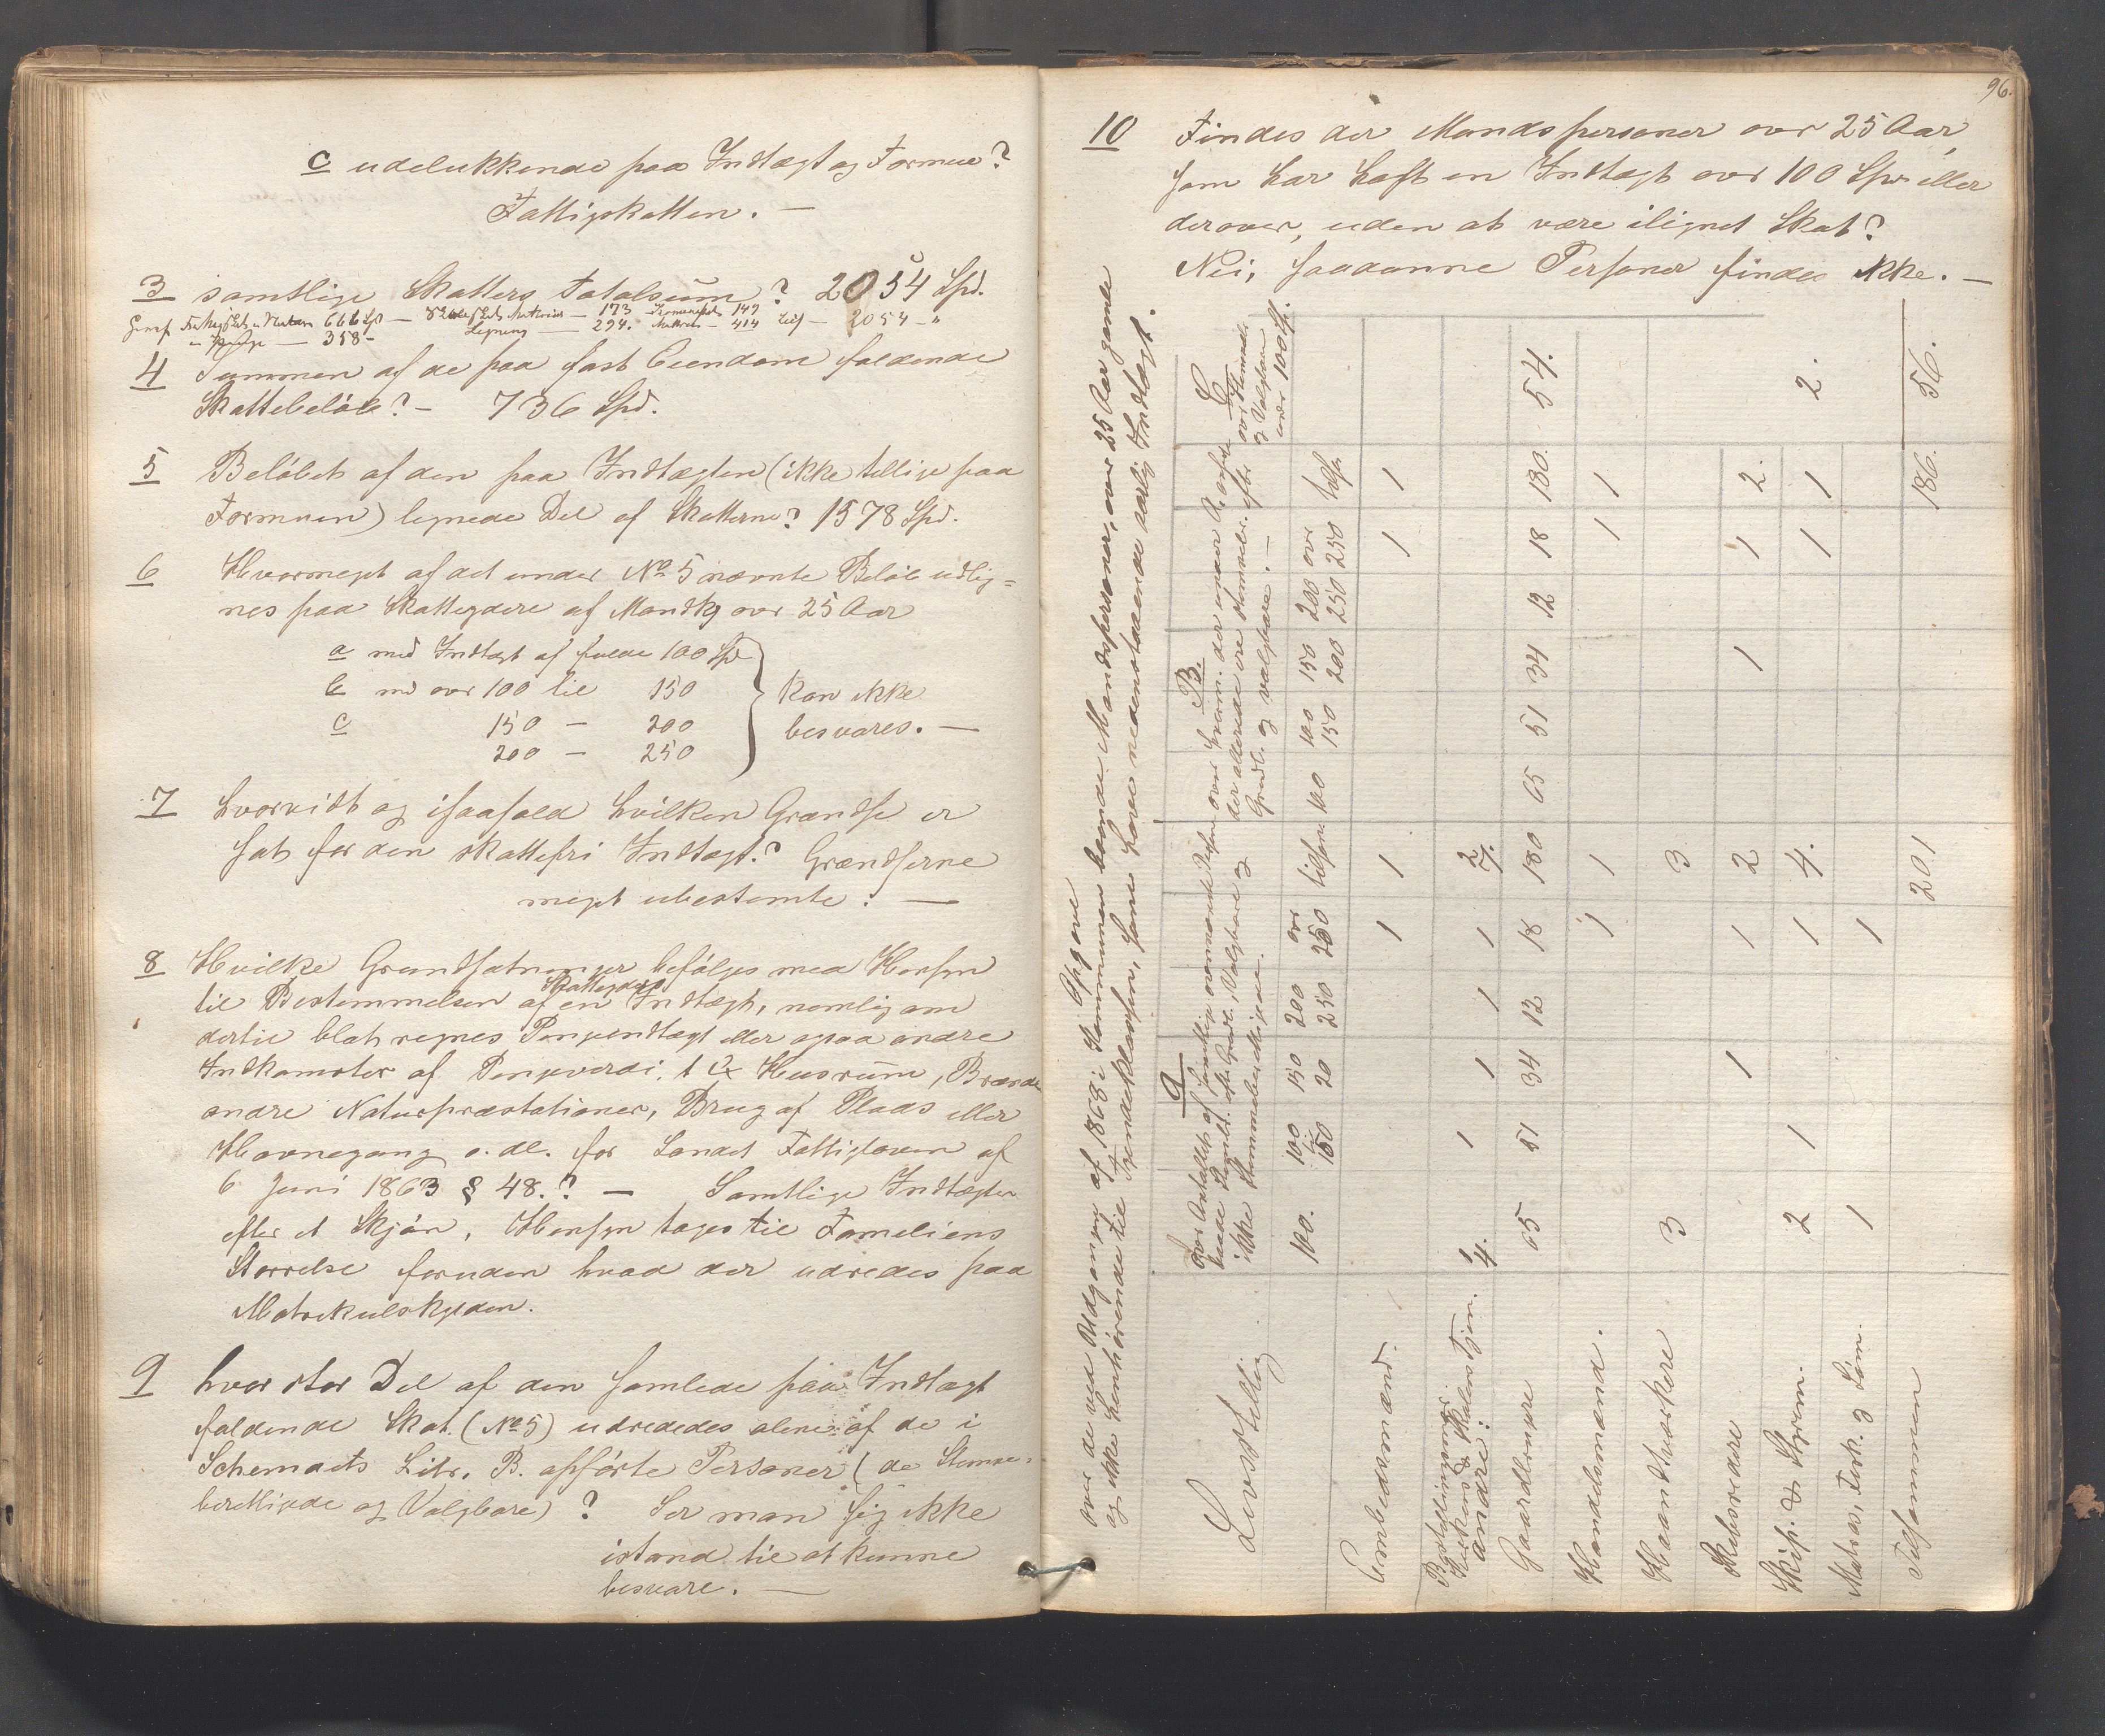 c udelukkende paa Indtægt og Formue?
Fattigskatten. —
3 samtlige Skatters Totalsum? 2054 Spd.
666 Spd — 173 — 149
358 — 294. Matrikul — 414 tils — 2054 — "
4 Summen af de paa fast Eiendom faldende
Skattebeløb? — 736 Spd.
5 Beløbet af den paa Indtægten (ikke tillige paa
Formuen) lignede Del af Skatterne? 1578 Spd.
6 Hvormeget af det under No 5 nævnte Beløb udlig=
nes paa Skatteydere af Mandkj over 25 Aar
a med Indtægt af fulde 100 Spd
b md over 100 til 150
c 150 — 200
200 — 250
kan ikke
besvares. —
7 hvorvidt og isaafald hvilken Grændse er
sat for den skattefri Indtægt? Grændserne
meget ubestemte. —
8 Hvilke Grundsætninger befølges med Hensyn
til Bestemmelsen af en Skatteyders Indtægt, nemlig om
dertil blot regnes Pengeindtægt eller ogsaa andre
Indkomster af Pengeværdi, t Ex Huusrum, Brænde
andre Naturpræstationer, Brug af Plads eller
Havnegang o. dl. for Landet Fattigloven af
6 Juni 1863 § 48.? — Samtlige Indtægter
efter et Skjøn, Hensyn tages til Fameliens
Størrelse foruden hvad der udredes paa
Matrikulskylden.
9 hvor stor Del af den samlede paa Indtægt
faldende Skat (No 5) udrededes alene af de i
Schemaets Litr. B. opførte Personer (de Stemme=
berettigede og Valgbare)? Ser man sig ikke
istand til at kunne
besvare. —
96.
10 Findes der Mandspersoner over 25 Aar,
som har haft en Indtægt over 100 Spd eller
derover, uden at være ilignet Skat?
Nei, saadanne Personer findes ikke. —
Opgave
over de ved Udgangen af 1868 i Kommunen boende Mandspersoner, over 25 Aar gamle
og ikke henhørende til Tjenesteklassen, som have nedenstaaende aarlig Indtægt.
Livsstilling
a
over Antallet af samtlige ovennævnte Personer
baade Stemmb. efter Grundl., Valgbare og
ikke stemmeberettigede.
100. | 100 til 150 | 150 20 | 200 250 | over 250 | tilsam:
B.
over hvorm. der under A. opførte
der allerede ere stemmeber. efter
Grundl. og valgbare. —
100 | 100 150 | 150 200 | 200 250 | over 250 | tilsp.
C
over Stemmeb.
og Valgbare
under 100 Sp.
Embedsmænd. 1 1 1 1
Bestillingsmænd
Kirkens & Skolens Tjen.
andre: 1 4. 1 1 1 1 2 7.
Gaardbrugere 65 51 34 12 18 180 65 51 34 12 18 180. 54.
Handelsmænd. 1 1 1 1
Haandværkere 3 3
Skibsredere 1 1 2 1 1 2.
Skip. & Styrm. 2 1 1 4. 1 1 2.
Matros, Fisk. & Løm. 1 1
Tilsammen 201 186. 56.